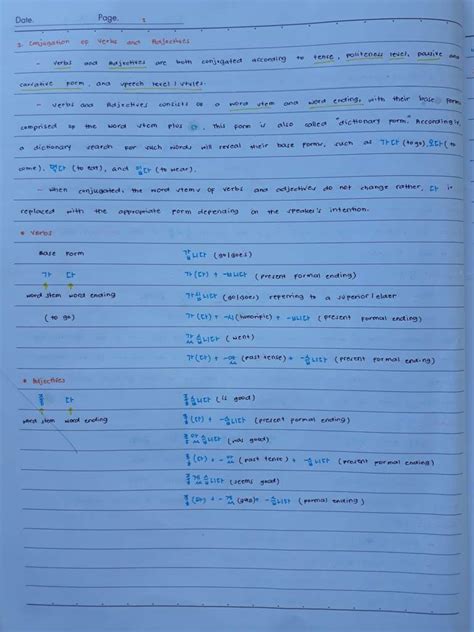 Date. Page. 1
1. Conjugation of Verbs and Adjectives
- Verbs and Adjectives are both conjugated according to tense, politeness level, passive and
causative form, and speech level / styles.
- Verbs and Adjectives consists of a word stem and word ending, with their base form
comprised of the word stem plus 다. This form is also called "dictionary form." According to
a dictionary search for such words will reveal their base forms, such as 가다 (to go), 오다 (to
come), 먹다 (to eat), and 입다 (to wear).
- When conjugated, the word stems of verbs and adjectives do not change rather, 다 is
replaced with the appropriate form depending on the speaker's intention.
• Verbs
Base Form 갑니다 (go/goes)
가 다 가(다) + -ㅂ니다 (present formal ending)
word stem word ending 가십니다 (go/goes) referring to a superior/elder
(to go) 가(다) + -시 (honorific) + -ㅂ니다 (present formal ending)
갔습니다 (went)
가(다) + -았 (past tense) + -습니다 (present formal ending)
• Adjectives
좋 다 좋습니다 (is good)
word stem word ending 좋(다) + -습니다 (present formal ending)
좋았습니다 (was good)
좋(다) + -았 (past tense) + -습니다 (present formal ending)
좋겠습니다 (seems good)
좋(다) + -겠 + -습니다 (formal ending)